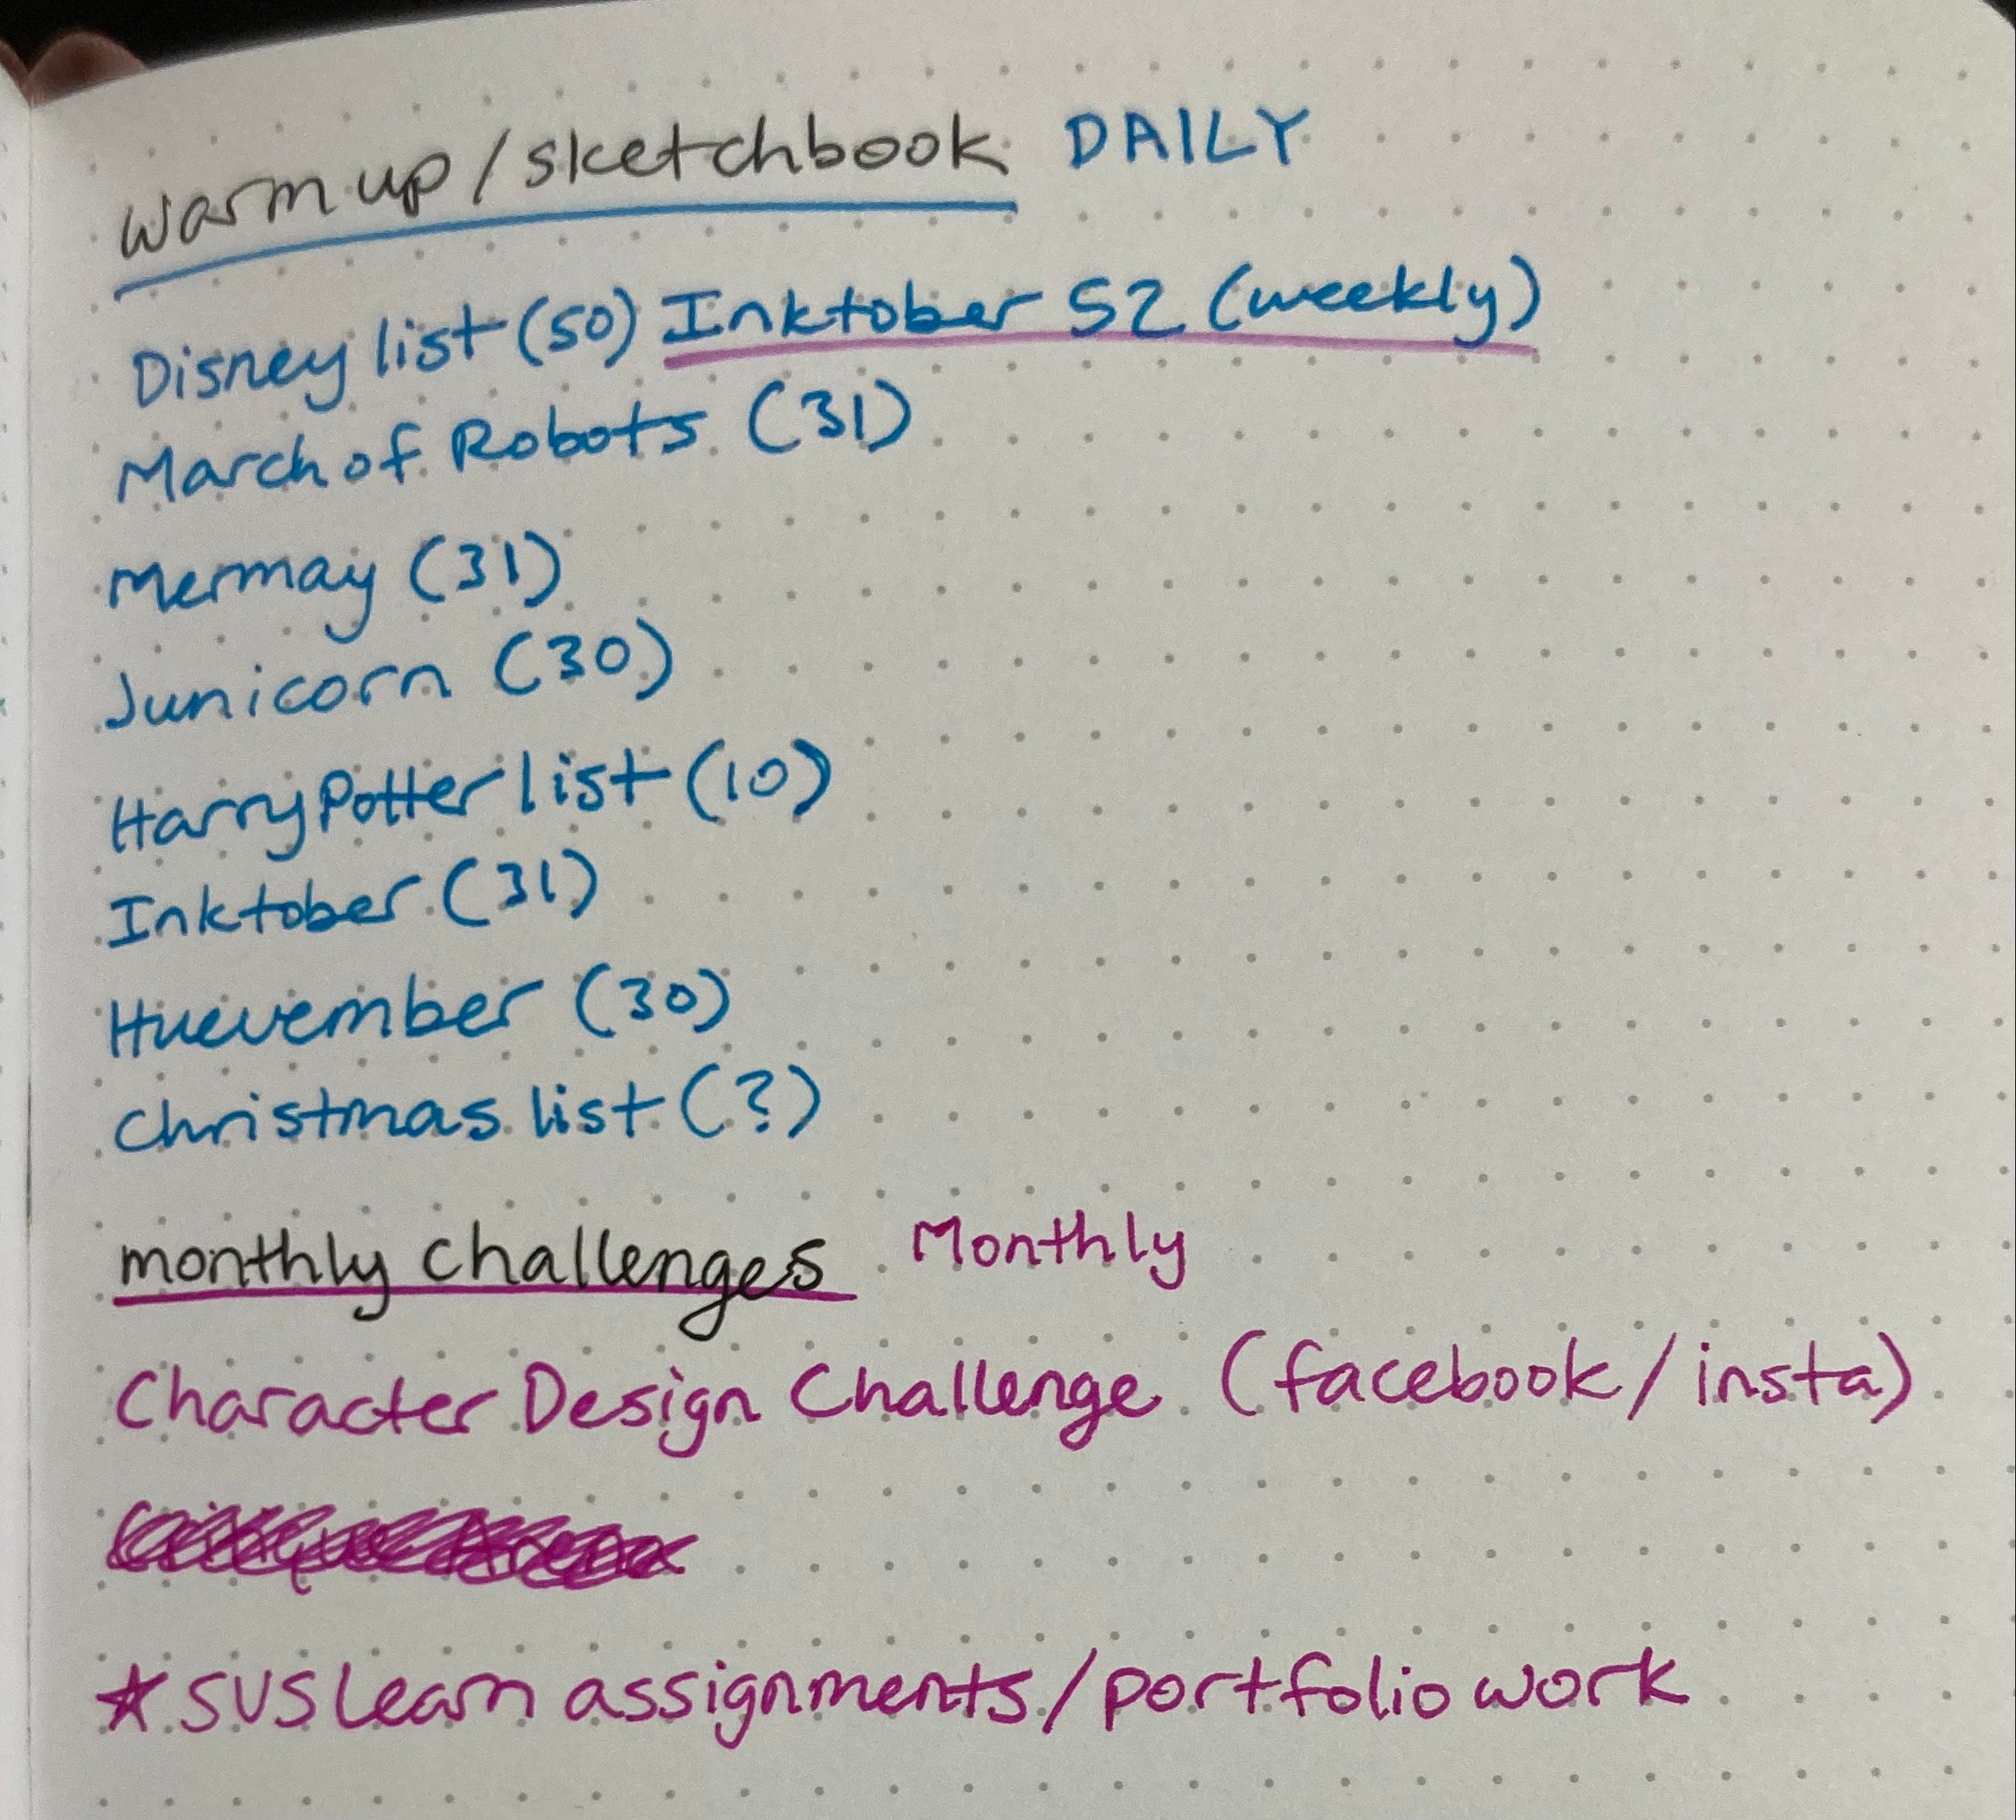 warm up / sketchbook DAILY
Disney list (50) Inktober 52 (weekly)
March of Robots (31)
Mermay (31)
Junicorn (30)
Harry Potter list (10)
Inktober (31)
Huevember (30)
Christmas list (?)
monthly challenges Monthly
Character Design Challenge (facebook / insta)
★ SVS Learn assignments / portfolio work